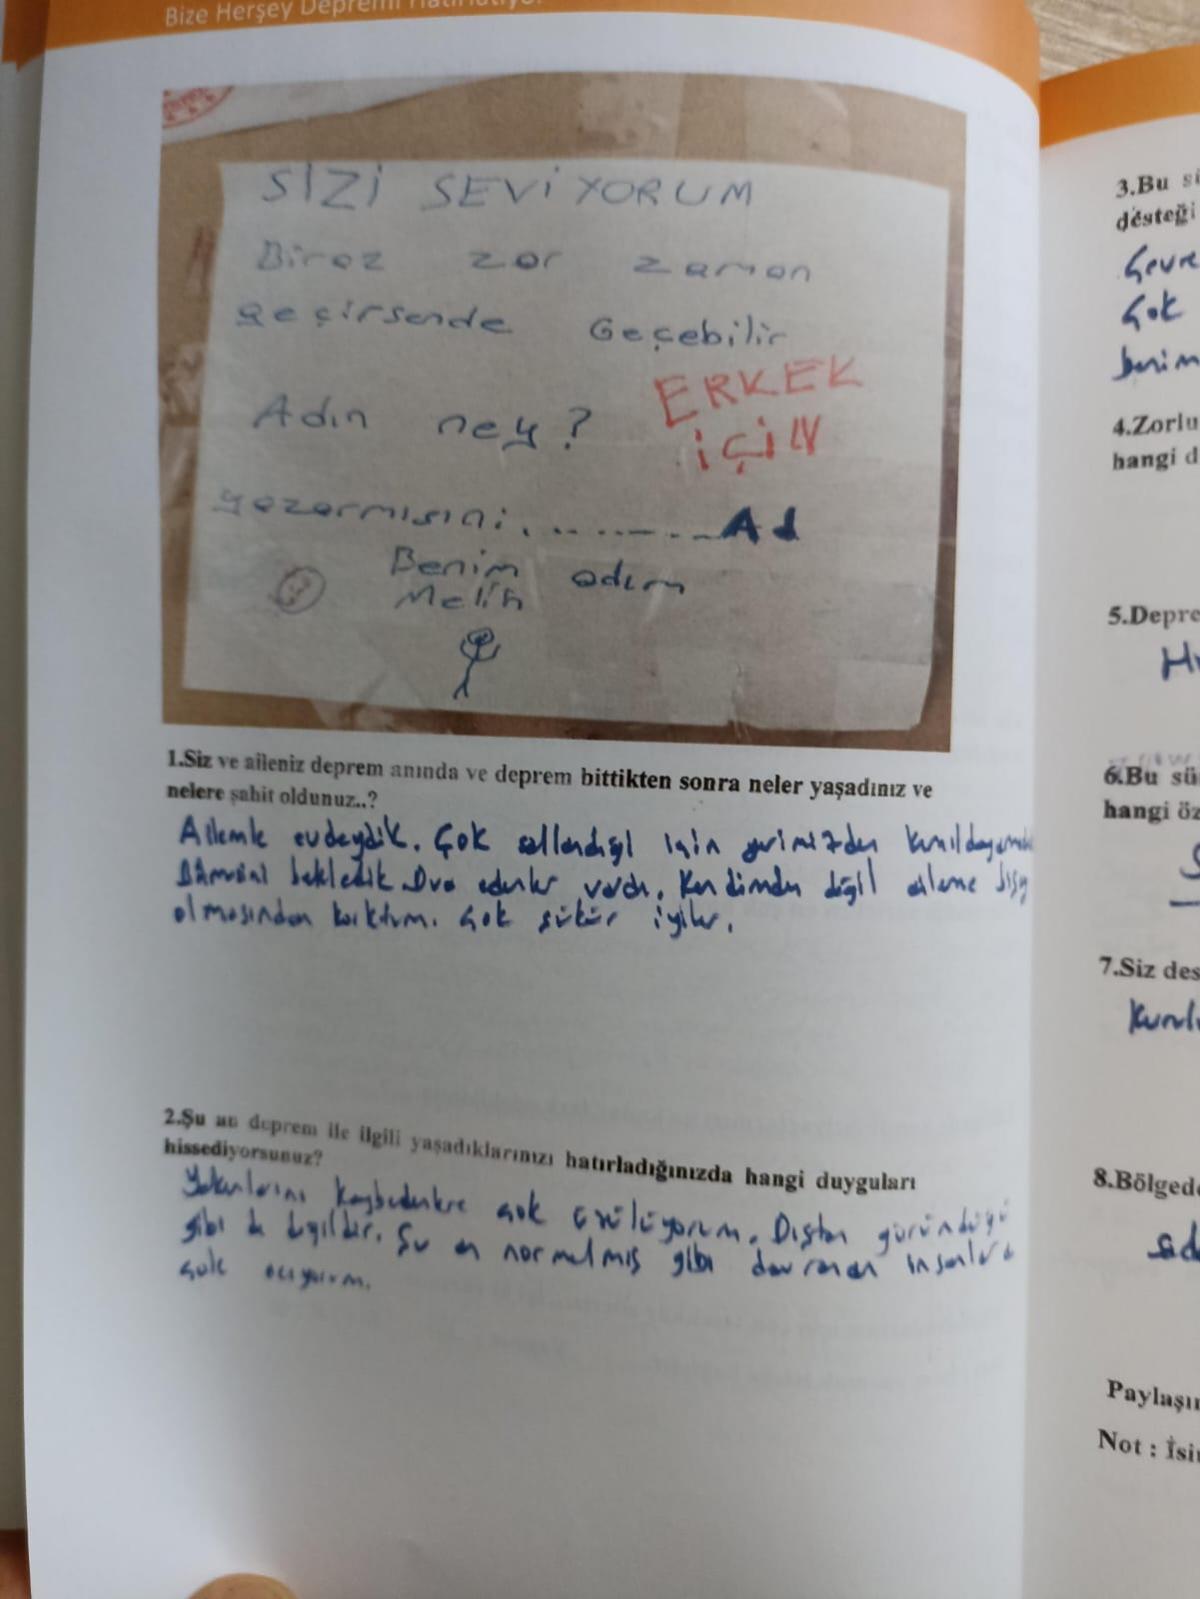 Bize Herşey Depremi Hatırlatıyor
SİZİ SEVİYORUM
Biraz zor zaman
geçirsende Geçebilir
Adın ney? ERKEK
İÇİN
yazarmısini..........Ad
Benim adım
Melih
1.Siz ve aileniz deprem anında ve deprem bittikten sonra neler yaşadınız ve
nelere şahit oldunuz..?
Ailemle evdeydik. Çok sallandığı için yerimizden kımıldayamadık
bekledik Dua edenler vardı. Kendimden değil aileme bişey
olmasından korktum. Çok şükür iyiler.
2.Şu an deprem ile ilgili yaşadıklarınızı hatırladığınızda hangi duyguları
hissediyorsunuz?
Yakınlarını kaybedenlere çok üzülüyorum. Dıştan göründüğü
gibi de değildir. Şu an normalmiş gibi davranan insanlara
çok acıyorum.
3.Bu
desteği
Çevre
Çok
benim
4.Zorlu
hangi d
5.Depre
6.Bu sü
hangi öz
7.Siz des
8.Bölgede
Paylaşı
Not : İsi